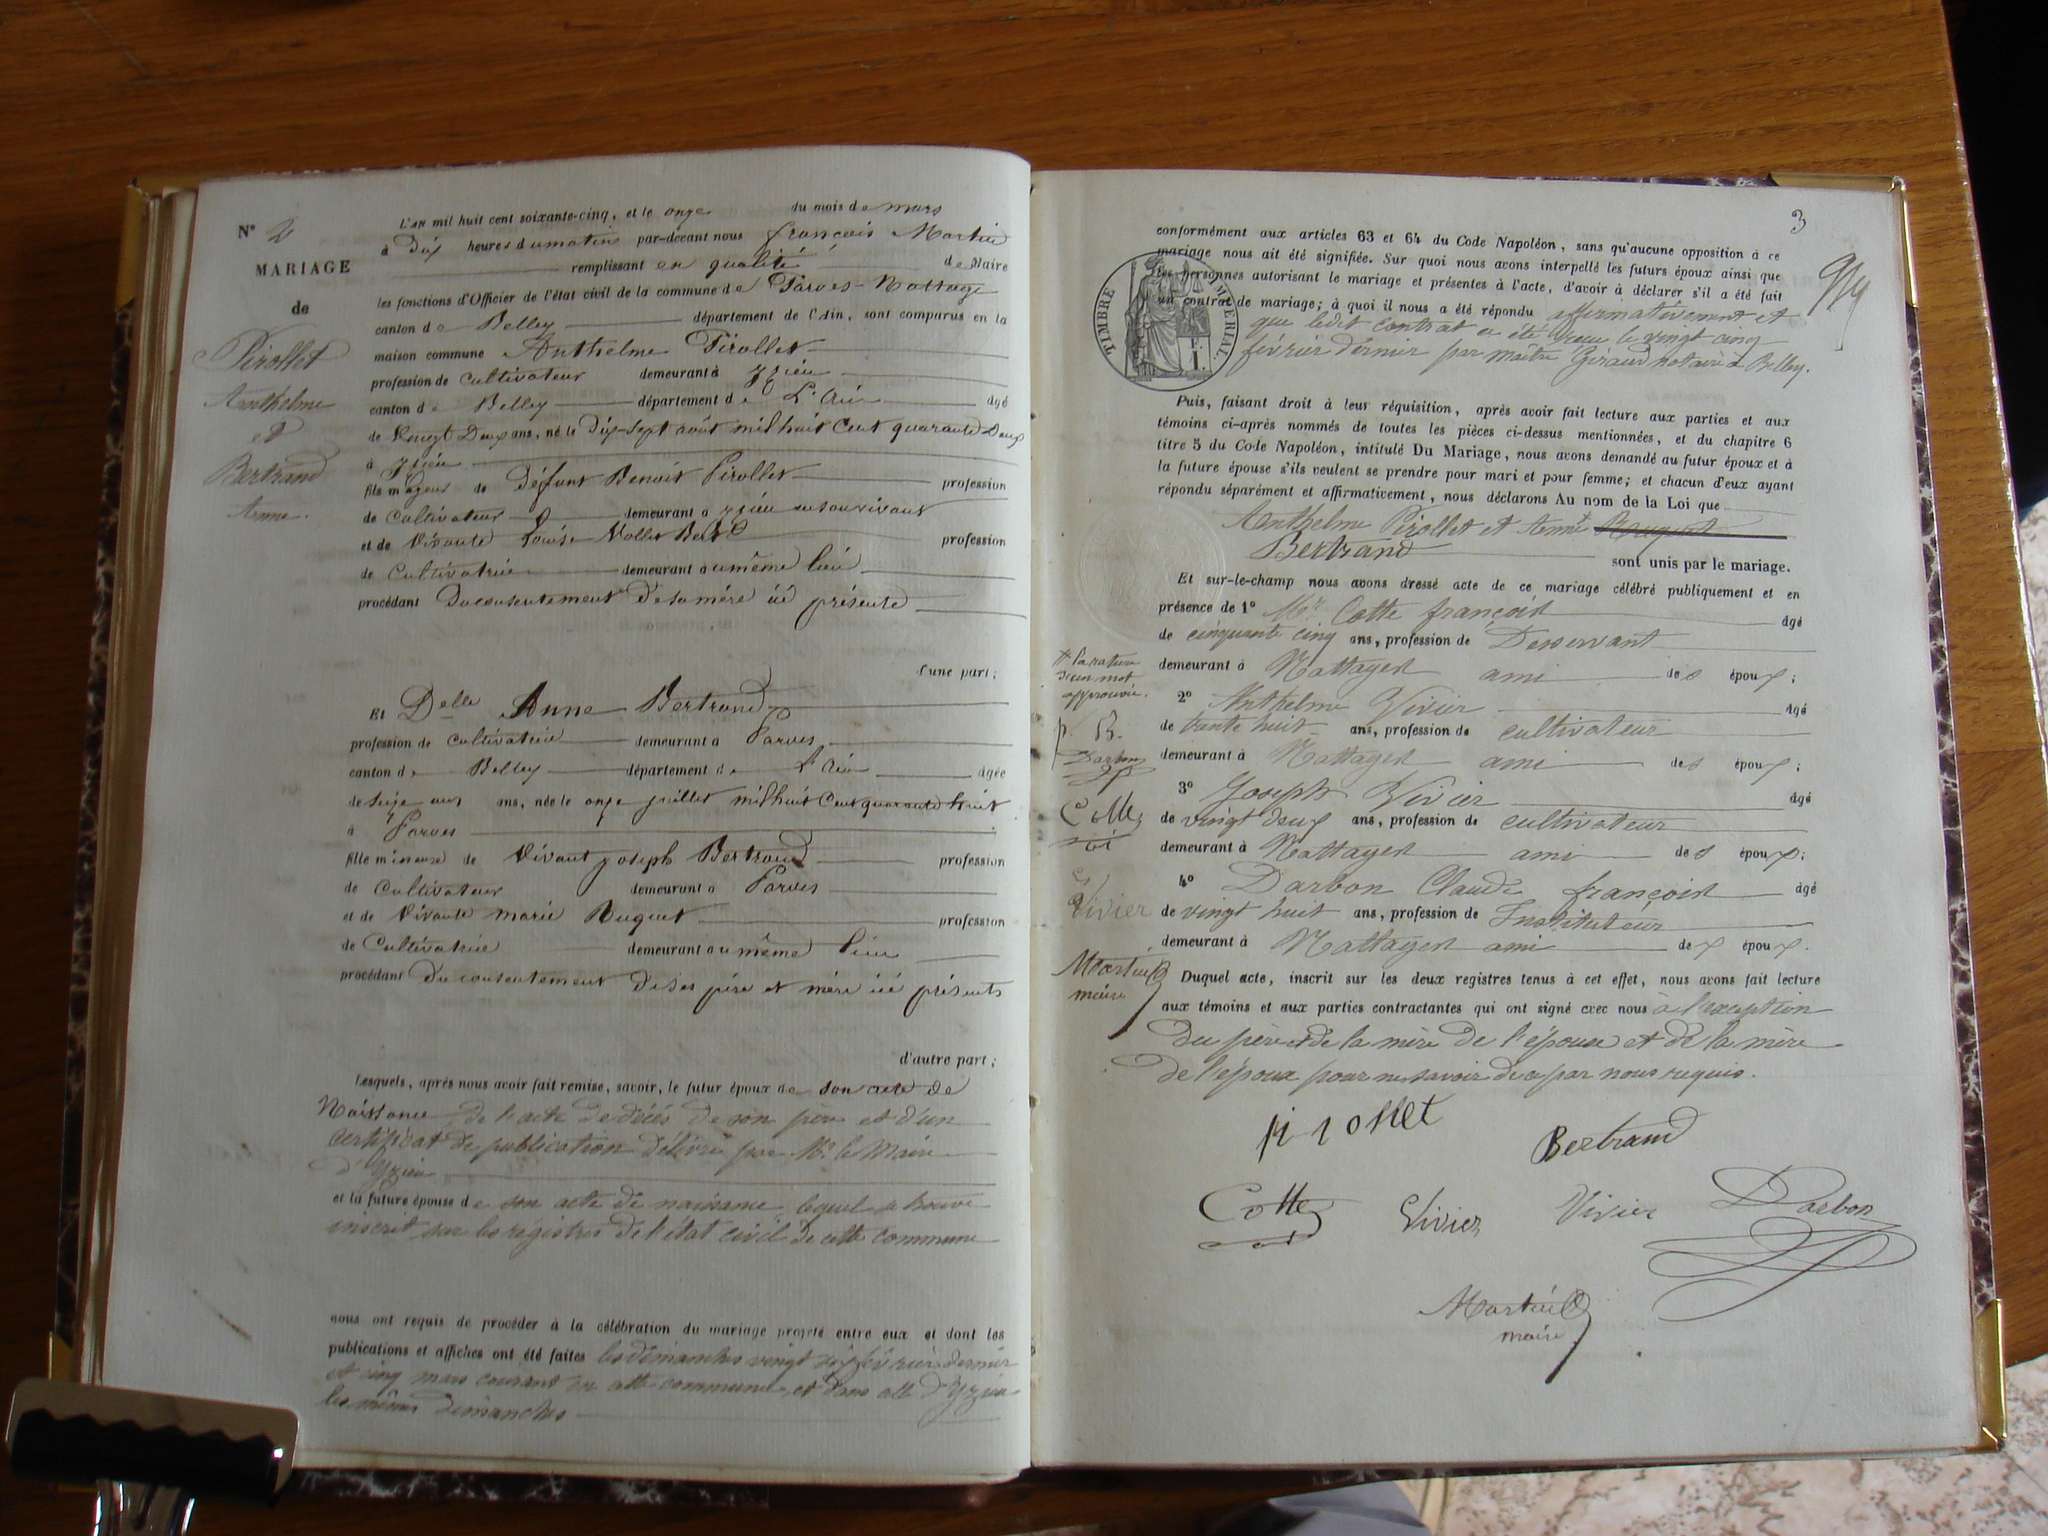 N° 2
MARIAGE
de
Pirollet
Anthelme
et
Bertrand
Anne.
L'an mil huit cent soixante-cinq, et le onze du mois de mars
à Dix heures du matin par-devant nous françois Martin
remplissant en qualité de Maire
les fonctions d'Officier de l'état civil de la commune de Parves-Nattage
canton de Belley département de l'Ain, sont comparus en la
maison commune Anthelme Pirollet
profession de Cultivateur demeurant à Yzieu
canton de Belley département de L'Ain âgé
de Vingt Deux ans, né le Dix-Sept août mil huit Cent quarante Deux
à Yzieu
fils majeur de Défunt Benoit Pirollet profession
de Cultivateur demeurant à yzieu en son vivant
et de Vivante Louise profession
de Cultivatrice demeurant au même lieu
procédant Du consentement De sa mère ici présente
d'une part;
Et Delle Anne Bertrand
profession de Cultivatrice demeurant à Parves
canton de Belley département de L'Ain âgée
de Seize ans ans, née le onze juillet mil huit Cent quarante huit
à Parves
fille mineure de Vivant joseph Bertrand profession
de Cultivateur demeurant à Parves
et de Vivante marie Ruguet profession
de Cultivatrice demeurant au même lieu
procédant Du consentement De ses père et mère ici présents
d'autre part;
Lesquels, après nous avoir fait remise, savoir, le futur époux de son acte de
Naissance de l'acte de décès de son père et d'un
certificat de publication délivré par Mr le Maire
d'Yzieu
et la future épouse de son acte de naissance lequel se trouve
inscrit sur les registres de l'état civil de cette commune
nous ont requis de procéder à la célébration du mariage projeté entre eux et dont les
publications et affiches ont été faites les dimanches vingt six février dernier
et cinq mars courant en cette commune et dans celle d'Yzieu
les mêmes dimanches
3
conformément aux articles 63 et 64 du Code Napoléon, sans qu'aucune opposition à ce
mariage nous ait été signifiée. Sur quoi nous avons interpellé les futurs époux ainsi que
les personnes autorisant le mariage et présentes à l'acte, d'avoir à déclarer s'il a été fait
un contrat de mariage; à quoi il nous a été répondu affirmativement et
que ledit contrat a été reçu le vingt cinq
février dernier par maître Giraud notaire à Belley.
TIMBRE IMPÉRIAL.
Puis, faisant droit à leur réquisition, après avoir fait lecture aux parties et aux
témoins ci-après nommés de toutes les pièces ci-dessus mentionnées, et du chapitre 6
titre 5 du Code Napoléon, intitulé Du Mariage, nous avons demandé au futur époux et à
la future épouse s'ils veulent se prendre pour mari et pour femme; et chacun d'eux ayant
répondu séparément et affirmativement, nous déclarons Au nom de la Loi que
Anthelme Pirollet et Anne Ruguet
Bertrand sont unis par le mariage.
Et sur-le-champ nous avons dressé acte de ce mariage célébré publiquement et en
présence de 1° Mr Cotte françois âgé
de cinquante cinq ans, profession de Desservant
demeurant à Nattages ami des époux;
2° Anthelme Vivier âgé
de trente huit ans, profession de cultivateur
demeurant à Nattages ami des époux;
3° Joseph Vivier âgé
de vingt deux ans, profession de cultivateur
demeurant à Nattages ami des époux;
4° Darbon Claude françois âgé
de vingt huit ans, profession de Instituteur
demeurant à Nattages ami des époux.
la rature
d'un mot
approuvée.
p. B.
Darbon
Cotte
Vivier
maire
Duquel acte, inscrit sur les deux registres tenus à cet effet, nous avons fait lecture
aux témoins et aux parties contractantes qui ont signé avec nous à l'exception
du père et de la mère de l'épouse et de la mère
de l'époux pour ne savoir de ce par nous requis.
pirollet
Bertrand
Cotte
Vivier
Vivier
Darbon
maire